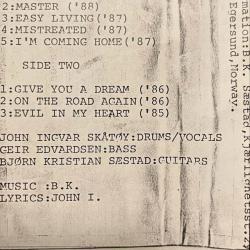 2:MASTER ('88)
3:EASY LIVING('87)
4:MISTREATED ('87)
5:I'M COMING HOME('87)
SIDE TWO
1:GIVE YOU A DREAM ('86)
2:ON THE ROAD AGAIN('86)
3:EVIL IN MY HEART ('85)
JOHN INGVAR SKÅTØY:DRUMS/VOCALS
GEIR EDVARDSEN:BASS
BJØRN KRISTIAN SÆSTAD:GUITARS
MUSIC :B.K.
LYRICS:JOHN I.
mation:B.K. Sæstad,Kjærlighetsst
Egersund,Norway.